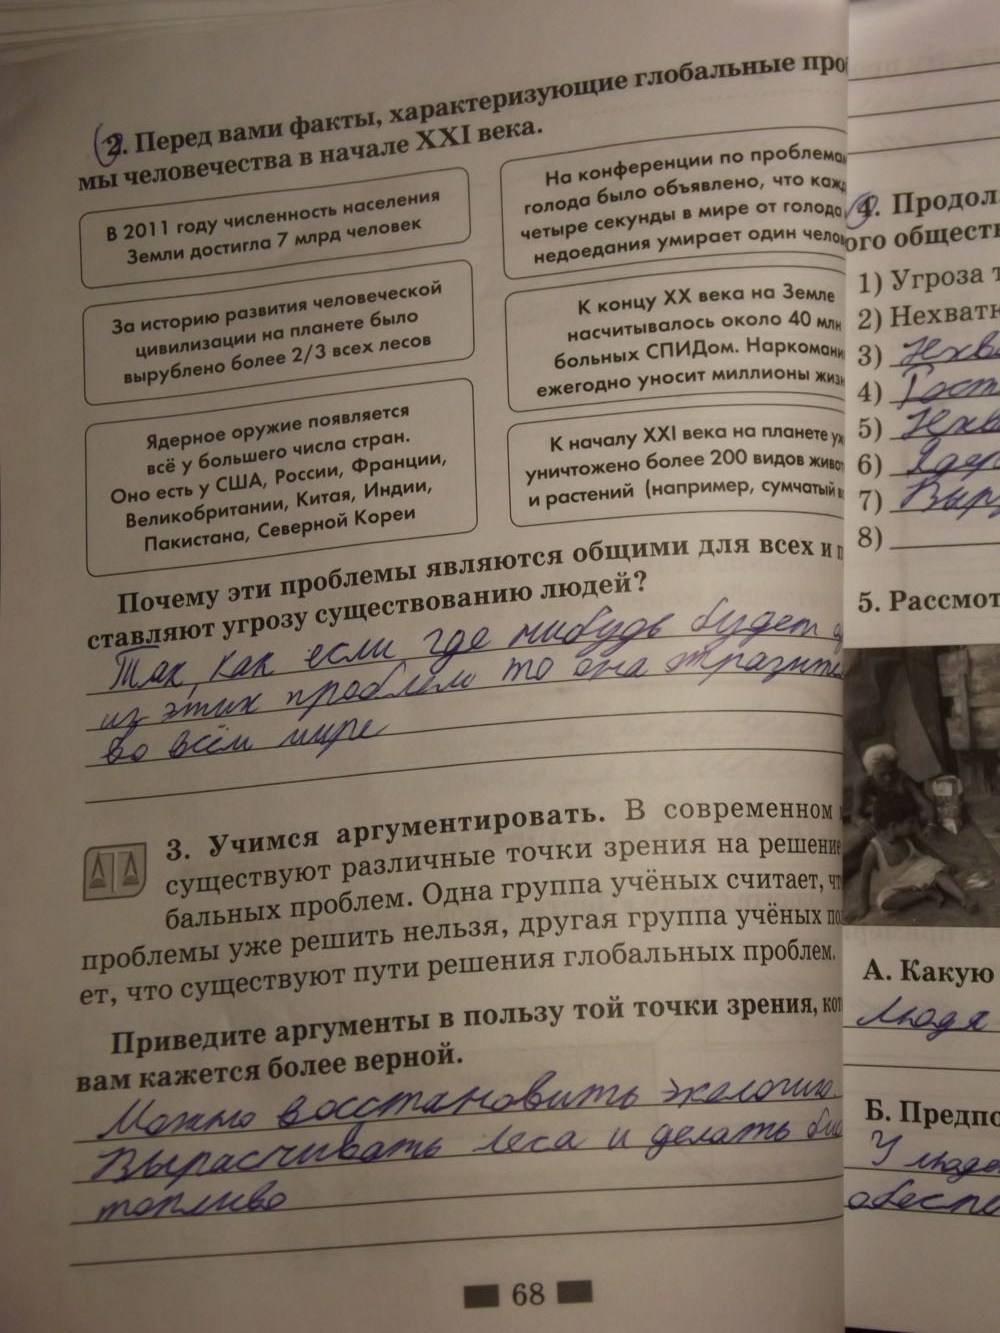 2. Перед вами факты, характеризующие глобальные про
мы человечества в начале XXI века.
В 2011 году численность населения
Земли достигла 7 млрд человек
За историю развития человеческой
цивилизации на планете было
вырублено более 2/3 всех лесов
Ядерное оружие появляется
всё у большего числа стран.
Оно есть у США, России, Франции,
Великобритании, Китая, Индии,
Пакистана, Северной Кореи
На конференции по проблема
голода было объявлено, что каж
четыре секунды в мире от голода
недоедания умирает один чело
К концу XX века на Земле
насчитывалось около 40 млн
больных СПИДом. Наркомани
ежегодно уносит миллионы жиз
К началу XXI века на планете у
уничтожено более 200 видов живо
и растений (например, сумчатый в
Почему эти проблемы являются общими для всех и п
ставляют угрозу существованию людей?
Так как если где нибудь будет
из этих проблем то она отразит
во всём мире
3. Учимся аргументировать. В современном
существуют различные точки зрения на решение
бальных проблем. Одна группа учёных считает, чт
проблемы уже решить нельзя, другая группа учёных по
ет, что существуют пути решения глобальных проблем.
Приведите аргументы в пользу той точки зрения, ко
вам кажется более верной.
Можно восстановить экологию.
Вырасчивать леса и делать био
топливо
68
4. Продол
ого обществ
1) Угроза т
2) Нехватк
3) Нехва
4) Рост
5) Нехв
6) Ядер
7) Выр
8)
5. Рассмот
А. Какую
Людя
Б. Предпо
У люде
обеспе